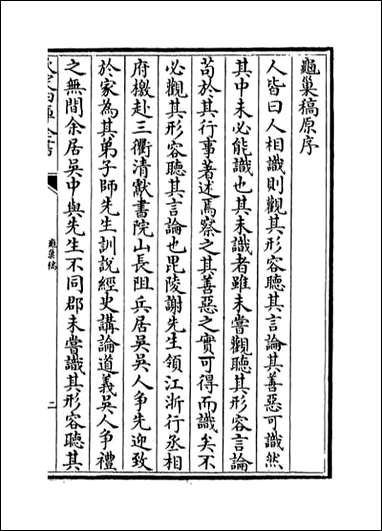 龜巢稿原序
人皆曰人相識則觀其形容聽其言論其善惡可識然
其中未必能識也其未識者雖未嘗觀聽其形容言論
苟於其行事著述焉察之其善惡之實可得而識矣不
必觀其形容聽其言論也毘陵謝先生領江浙行丞相
府檄赴三衢清獻書院山長阻兵居吳吳人争先迎致
於家為其弟子師先生訓說經史講論道義吳人争禮
之無間余居吳中與先生不同郡未嘗識其形容聽其
龜巢稿